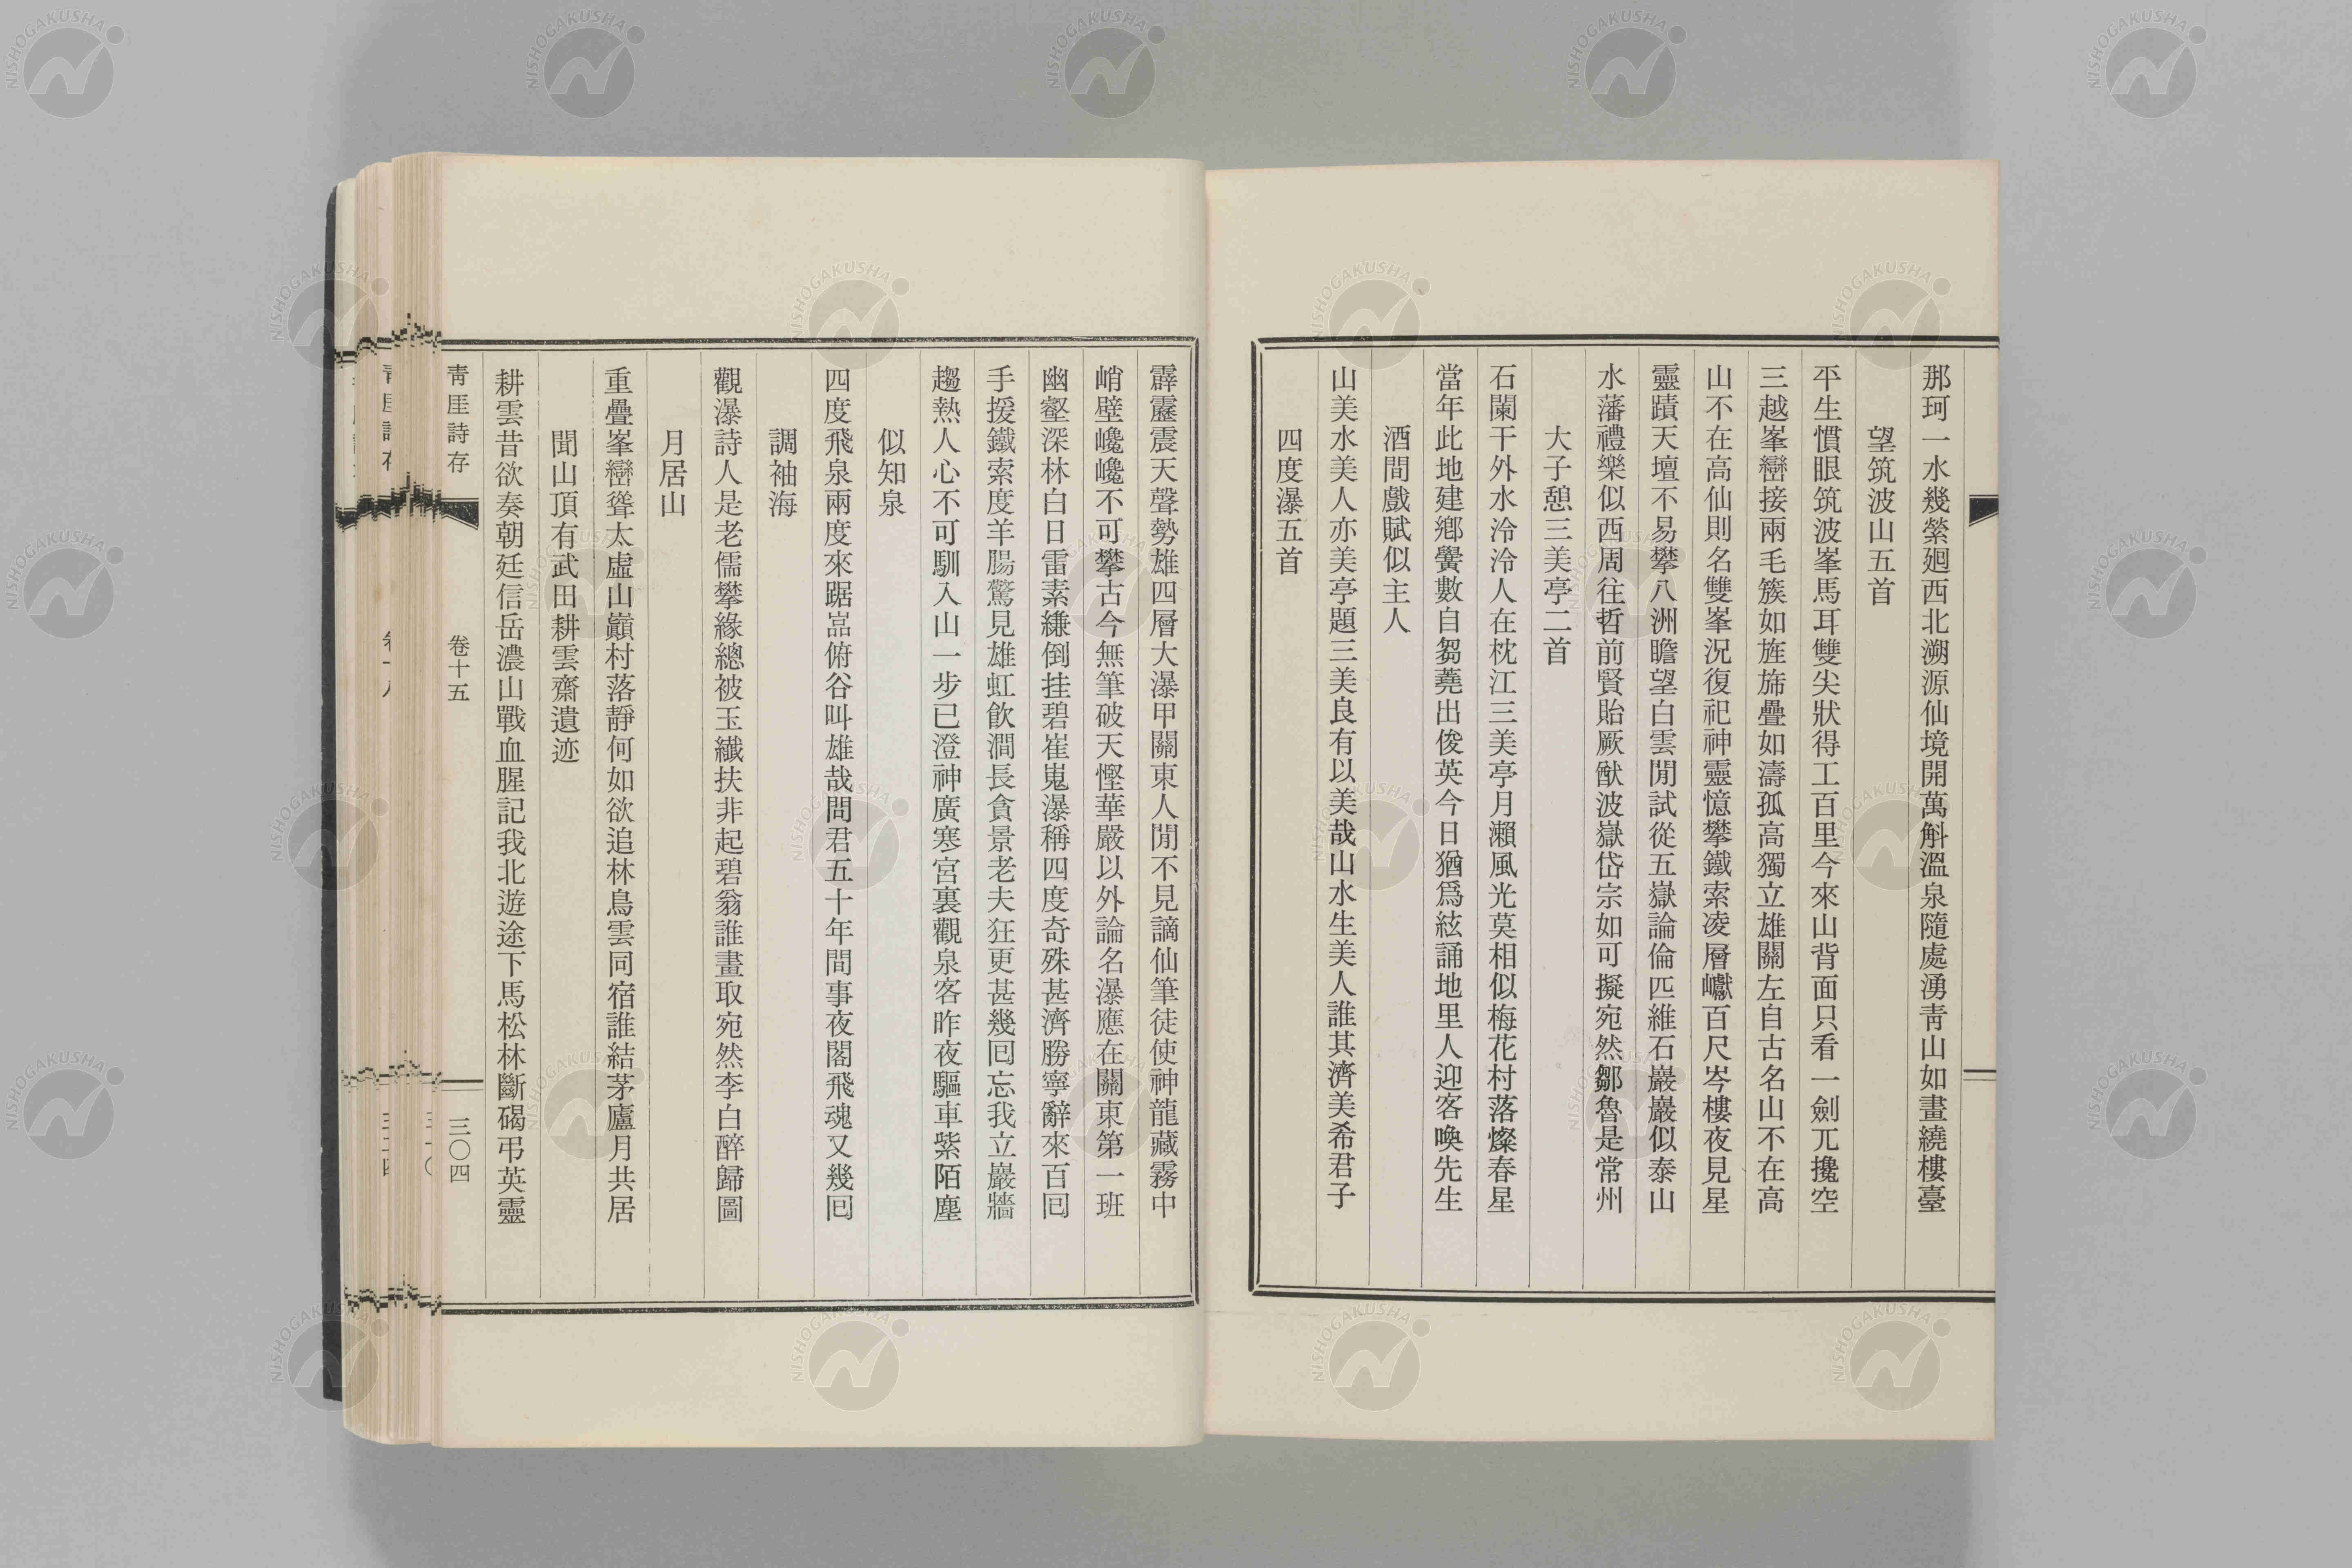 那珂一水幾縈廻西北溯源仙境開萬斛溫泉隨處湧靑山如畫繞樓臺
望筑波山五首
平生慣眼筑波峯馬耳雙尖狀得工百里今來山背面只看一劍兀攙空
三越峯巒接兩毛簇如旌旆疊如濤孤高獨立雄關左自古名山不在高
山不在高仙則名雙峯況復祀神靈憶攀鐵索凌層巘百尺岑樓夜見星
靈蹟天壇不易攀八洲瞻望白雲閒試從五嶽論倫匹維石巖巖似泰山
水藩禮樂似西周往哲前賢貽厥猷波嶽岱宗如可擬宛然鄒魯是常州
大子憩三美亭二首
石闌干外水泠泠人在枕江三美亭月瀨風光莫相似梅花村落燦春星
當年此地建鄕黌數自芻蕘出俊英今日猶爲絃誦地里人迎客喚先生
酒間戲賦似主人
山美水美人亦美亭題三美良有以美哉山水生美人誰其濟美希君子
四度瀑五首
霹靂震天聲勢雄四層大瀑甲關東人閒不見謫仙筆徒使神龍藏霧中
峭壁巉巉不可攀古今無筆破天慳華嚴以外論名瀑應在關東第一班
幽壑深林白日雷素縑倒挂碧崔嵬瀑稱四度奇殊甚濟勝寧辭來百回
手援鐵索度羊腸驚見雄虹飮澗長貪景老夫狂更甚幾回忘我立巖牆
趨熱人心不可馴入山一步已澄神廣寒宮裏觀泉客昨夜驅車紫陌塵
似知泉
四度飛泉兩度來踞嵓俯谷叫雄哉問君五十年間事夜閣飛魂又幾回
調袖海
觀瀑詩人是老儒攀緣總被玉纖扶非起碧翁誰畫取宛然李白醉歸圖
月居山
重疊峯巒聳太虛山巓村落靜何如欲追林鳥雲同宿誰結茅廬月共居
聞山頂有武田耕雲齋遺迹
耕雲昔欲奏朝廷信岳濃山戰血腥記我北遊途下馬松林斷碣弔英靈
靑厓詩存
卷十五
三〇四